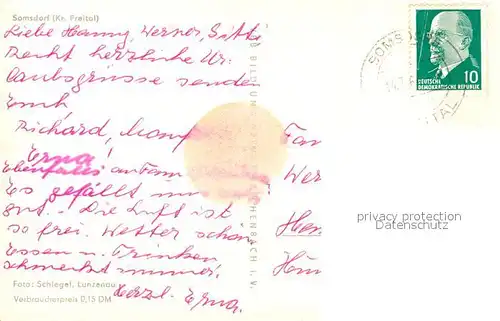 Somsdorf (Kr. Freital)
Liebe Hanny, Werner, Gitti
Recht herzliche Ur-
laubsgrüsse senden
Euch
Richard,
Erna!
Ebenfalls
Es gefällt
gut. Die Luft ist
so frei. Wetter schön
Essen u. Trinken
schmeckt immer.
Herzl. Erna.
Foto: Schlegel, Lunzenau
Verbraucherpreis 0,15 DM
BILD UND HEIMAT REICHENBACH I. V.
SOMSDORF
FREITAL
10
DEUTSCHE
DEMOKRATISCHE REPUBLIK
Fam
Wer
Hin
privacy protection
Datenschutz